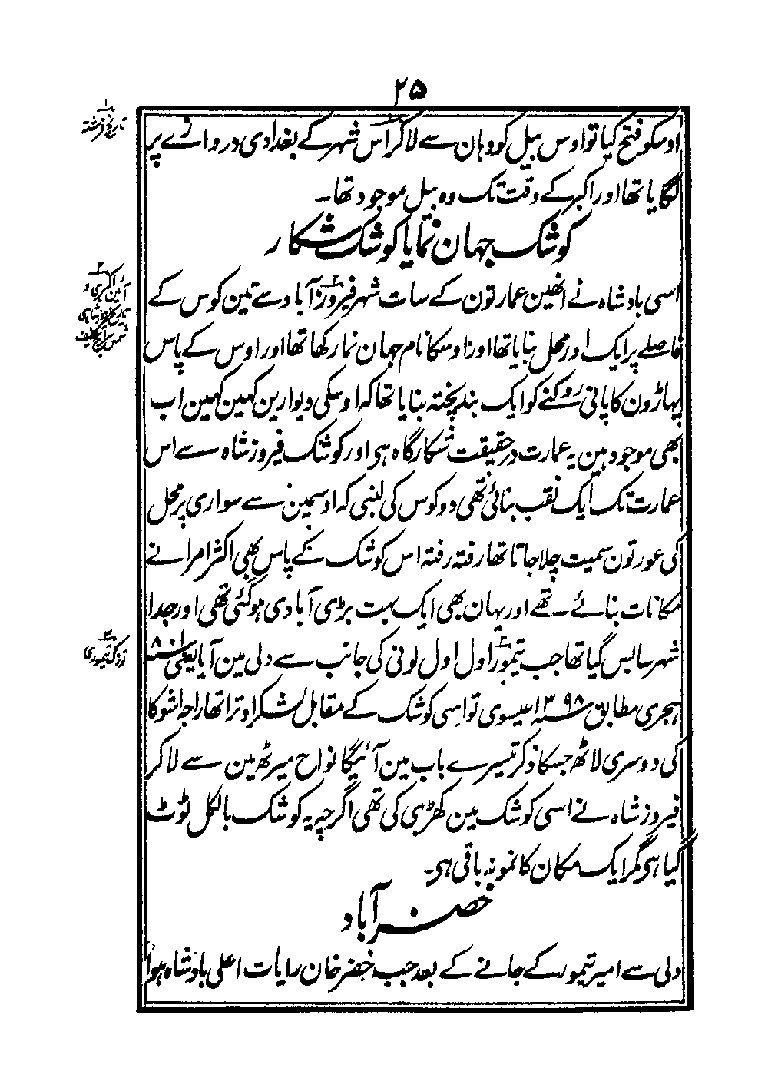 ۲۵
اوسکو فتح کیا تو اوس بیل کو وہان سے لاکر اس شہر کے بغدادی دروازے پر
لگایا تھا اور اکبر کے وقت تک وہ بیل موجود تھا۔
کوشک جہان نما یا کوشک شکار
اسی بادشاہ نے انھین عمارتون کے سات شہر فیروزآباد سے تین کوس کے
فاصلے پر ایک اور محل بنایا تھا اور اوسکا نام جہان نما رکھا تھا اور اوس کے پاس
پہاڑون کا پانی روکنے کو ایک بند پختہ بنایا تھا کہ اوسکی دیوارین کہین کہین اب
بھی موجود ہین یہ عمارت درحقیقت شکارگاہ ہی اور کوشک فیروز شاہ سے اس
عمارت تک ایک نقب بنائی تھی دو کوس کی لنبی کہ اوسمین سے سواری پر محل
کی عورتون سمیت چلا جاتا تھا رفتہ رفتہ اس کوشک کے پاس بھی اکثر امرا نے
مکانات بنائے تھے اور یہان بھی ایک بہت بڑی آبادی ہوگئی تھی اور جدا
شہر سا بس گیا تھا جب تیمور اول اول لونی کی جانب سے دلی مین آیا یعنی ۸۰۱
ہجری مطابق ۱۳۹۸ عیسوی تو اسی کوشک کے مقابل لشکر اوترا تھا راجہ اشوکا
کی دوسری لاٹھ جسکا ذکر تیسرے باب مین آئیگا نواح میرٹھ مین سے لاکر
فیروز شاہ نے اسی کوشک مین کھڑی کی تھی اگرچہ یہ کوشک بالکل ٹوٹ
گیا ہی مگر ایک مکان کا نمونہ باقی ہی۔
خضر آباد
دلی سے امیر تیمور کے جانے کے بعد جب خضر خان رایات اعلی بادشاہ ہوا
۱
تاریخ فرشتہ
۲
آئین اکبری و
تاریخ فیروز شاہی
شمس سراج عفیف
۳
تزک تیموری